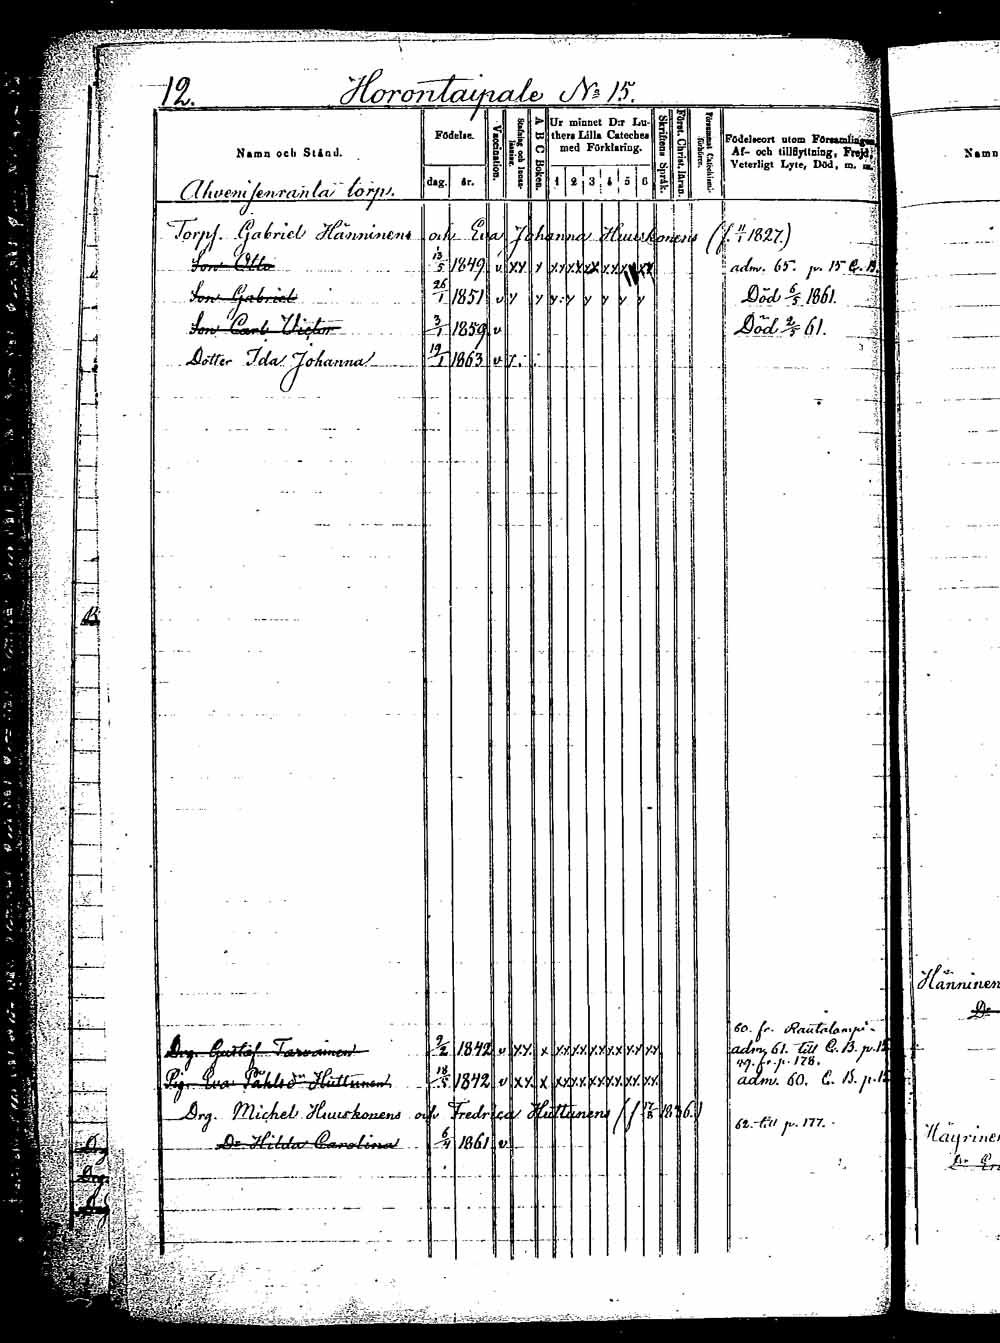 12. Horontaipale No 15.
Namn och Stånd.
Födelse.
dag. år.
Vaccination.
A B C Boken.
Ur minnet D:r Lu-
thers Lilla Cateches
med Förklaring.
1 2 3 4 5 6
Skriftens Språk.
Först. Christ. läran.
Födelseort utom Församlingen,
Af- och tillflyttning, Frejd,
Veterligt Lyte, Död, m. m.
Namn
Ahvenisenranta torp.
Torpf. Gabriel Hänninens och Eva Johanna Huuskonens (f. 11/1 1827.)
Son Otto 13/5 1849 v xx y adm. 65. p. 15 C. B.
Son Gabriel 26/1 1851 v y y y y y y y y Död 6/5 1861.
Son Carl Victor 3/1 1859 v Död 2/5 61.
Dotter Ida Johanna 19/1 1863 v
60. fr. Rautalampi
Drg. Gustaf Tarvainen 9/2 1842 v xx x xx xx xx xx xx xx adm. 61. till C. B. p. 12
59. fr. p. 178.
Pig. Eva Påhlsdr Huttunen 18/5 1842 v xx x xx xx xx xx xx xx adm. 60. C. B. p. 12
Drg. Michel Huuskonens och Fredrica Huttunens (f. 1836.)
62. till p. 177.
Dr Hilda Carolina 6/4 1861 v
Hänninen
Dr
Häyrinen
Drg
Drg.